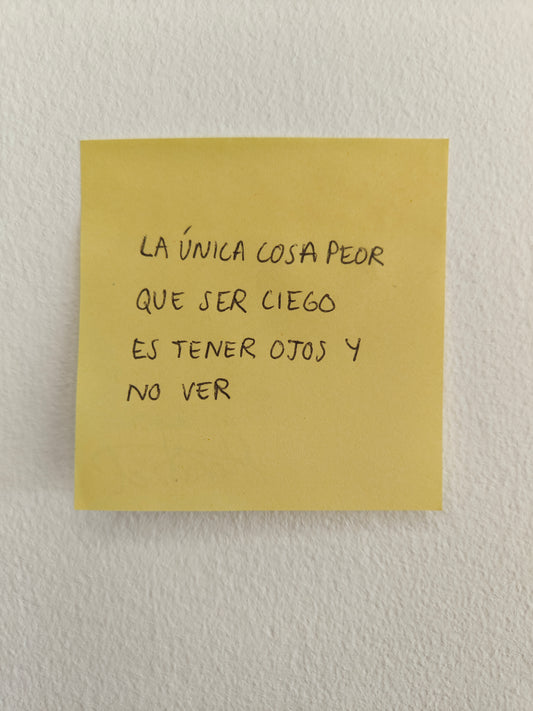 LA ÚNICA COSA PEOR
QUE SER CIEGO
ES TENER OJOS Y
NO VER